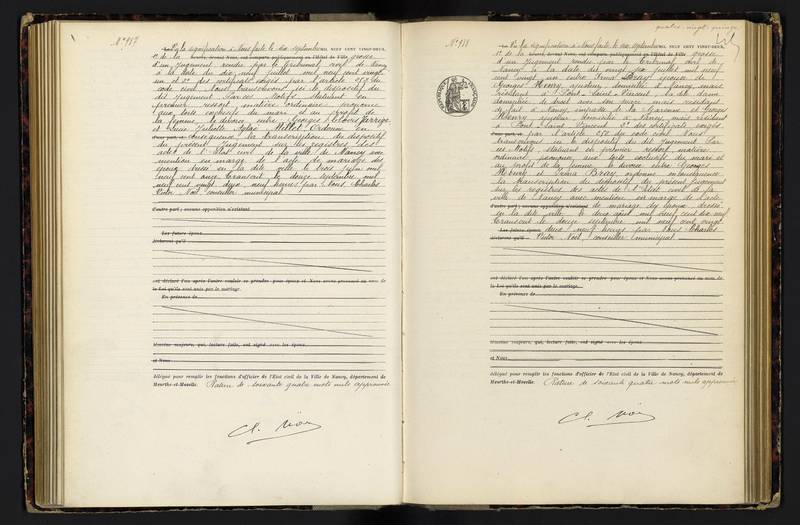 N° 937
Vu la signification à Nous faite le dix septembre MIL NEUF CENT VINGT-DEUX,
1° de la grosse
d'un jugement rendu par le tribunal civil de
à la date du dix neuf juillet mil neuf cent vingt
un et 2° des certificats exigés par l'article 252 du
code civil Nous transcrivons ici le dispositif du
dit jugement Par ces Motifs Statuant en
premier ressort matière ordinaire prononce
aux torts exclusifs du mari et au profit de
la femme le divorce entre Georges
et Juliette Aglaé Millet Ordonne en
conséquence la transcription du dispositif
du présent jugement sur les registres des
actes de l'Etat civil de la ville de Nancy avec
mention en marge de l'acte de mariage des
époux dressé en la dite ville le trois juin mil
neuf cent onze Transcrit le douze septembre mil
neuf cent vingt deux neuf heures par Nous Charles
Victor Noël conseiller municipal
d'autre part; aucune opposition n'existant
Les futurs époux
déclarent qu'il
ont déclaré l'un après l'autre vouloir se prendre pour époux et Nous avons prononcé au nom de
la Loi qu'ils sont unis par le mariage.
En présence de
témoins majeurs, qui, lecture faite, ont signé avec les époux
et Nous
délégué pour remplir les fonctions d'officier de l'Etat civil de la Ville de Nancy, département de
Meurthe-et-Moselle. Rature de soixante quatre mots nuls approuvée
Ch. Noël
quatre vingt quinze
N° 938
Vu la signification à Nous faite le dix septembre MIL NEUF CENT VINGT-DEUX,
1° de la grosse
d'un jugement rendu par le tribunal civil de
Nancy à la date du onze juillet mil neuf
cent vingt un entre Irma Bray épouse de
Georges Henry ajusteur domicilié à Nancy mais
résidant à Pont Saint Vincent et la dame
domiciliée de droit avec son mari mais résidant
de fait à Nancy impasse de la Garenne et Georges
Henry ajusteur domicilié à Nancy mais résidant
à Pont Saint Vincent 2° des certificats exigés
par l'article 252 du code civil Nous
transcrivons ici le dispositif du dit jugement Par
ces Motifs Statuant en premier ressort matière
ordinaire prononce aux torts exclusifs du mari et
au profit de la femme le divorce entre Georges
Henry et Irma Bray ordonne en conséquence
la transcription du dispositif du présent jugement
sur les registres des actes de l'Etat civil de la
ville de Nancy avec mention en marge de l'acte
d'autre part; aucune opposition n'existant de mariage des époux dressé
en la dite ville le deux août mil neuf cent dix neuf
Transcrit le douze septembre mil neuf cent vingt
Les futurs époux deux neuf heures par Nous Charles
déclarent qu'il Victor Noël, conseiller municipal
ont déclaré l'un après l'autre vouloir se prendre pour époux et Nous avons prononcé au nom de
la Loi qu'ils sont unis par le mariage.
En présence de
témoins majeurs, qui, lecture faite, ont signé avec les époux
et Nous
délégué pour remplir les fonctions d'officier de l'Etat civil de la Ville de Nancy, département de
Meurthe-et-Moselle. Rature de soixante quatre mots nuls approuvée
Ch. Noël